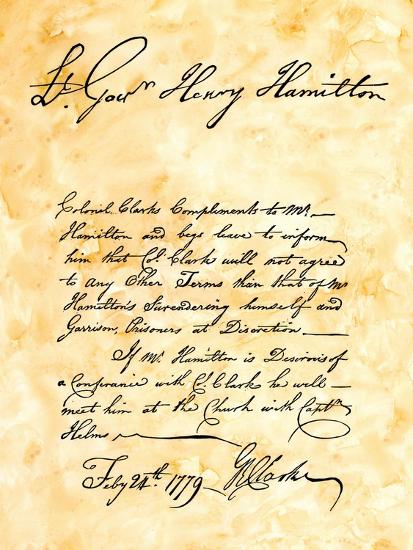 Lt. Govrn Henry Hamilton
Colonil Clarks Compliments to Mr.
Hamilton and begs leave to inform
him that Col. Clark will not agree
to any Other Terms than that of Mr
Hamilton's Surendering himself and
Garrison, Prisoners at Discretion
If Mr. Hamilton is Desirious of
a Conferance with Col. Clark he will
meet him at the Church with Captn
Helms
Feby 24th. 1779 GRClark